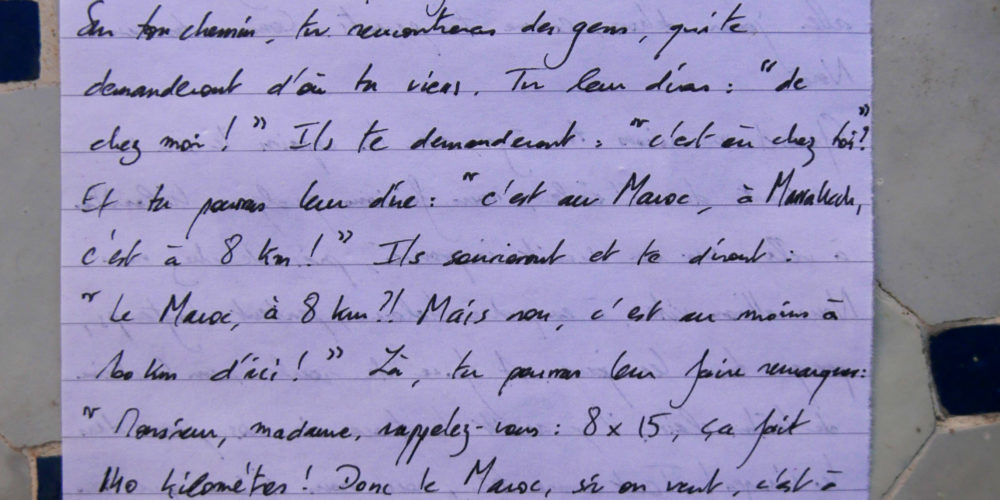 Sur ton chemin, tu rencontreras des gens, qui te
demanderont d'où tu viens. Tu leur diras : "de
chez moi ! " Ils te demanderont : "c'est où chez toi?"
Et tu pourras leur dire : "c'est au Maroc, à Marrakech,
c'est à 8 km ! " Ils souriront et te diront :
"Le Maroc, à 8 km ?! Mais non, c'est au moins à
km d'ici ! " Là, tu pourras leur faire remarquer :
"Monsieur, madame, rappelez-vous : 8 x 15, ça fait
140 kilomètres ! Donc le Maroc, si on veut, c'est à